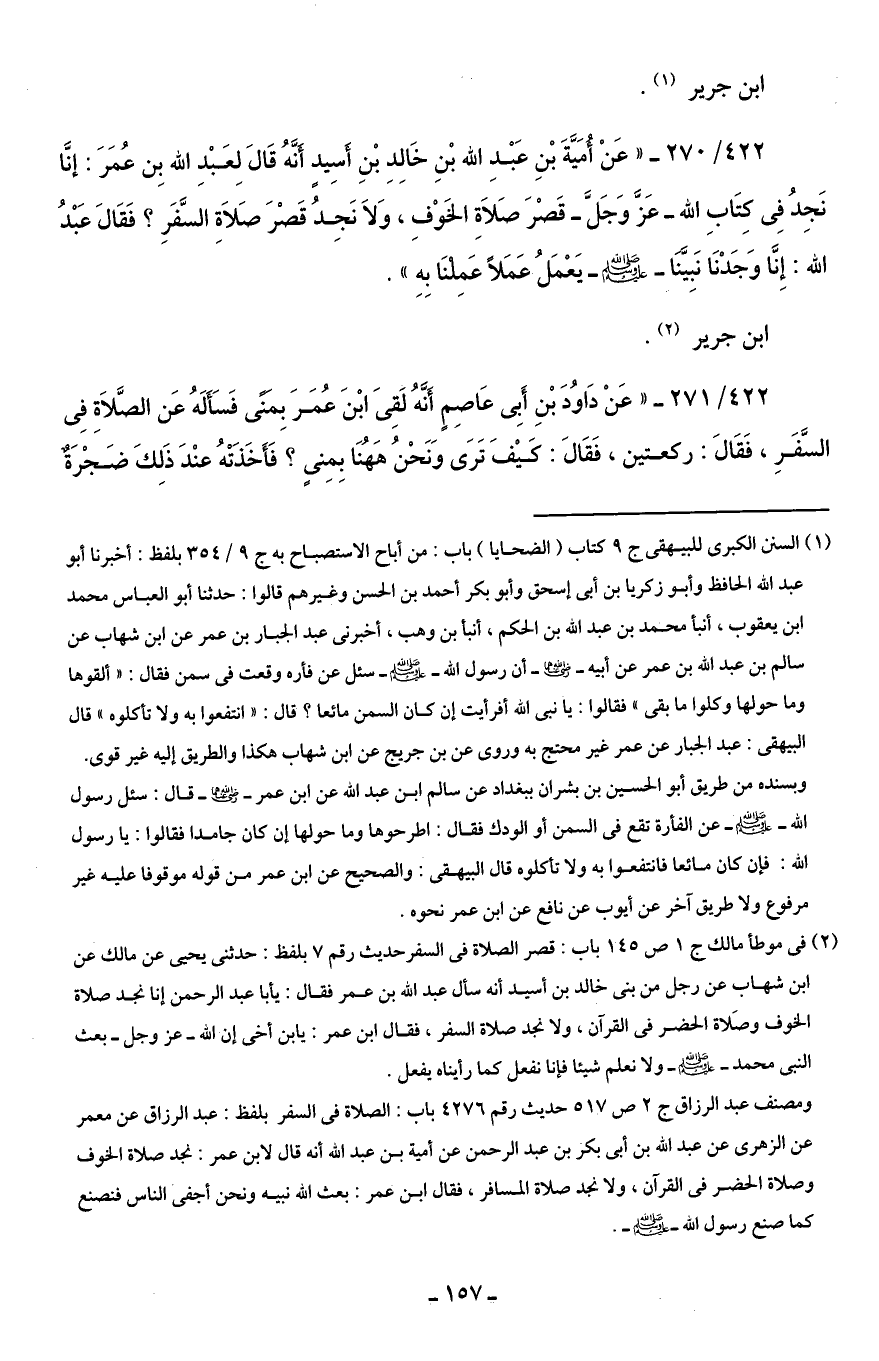 ابن جرير (١) .
٤٢٢/ ٢٧٠ ـ « عَنْ أُمَيَّةَ بْنِ عَبْدِ الله بْنِ خَالِدِ بْنِ أَسِيدٍ أَنَّهُ قَالَ لِعَبْدِ الله بِن عُمَرَ : إِنَّا
نَجِدُ فِى كِتَابِ الله ـ عَزَّ وَجَلَّ ـ قَصْرَ صَلاَةِ الخَوْفِ ، وَلاَ نَجِدُ قَصْرَ صَلاَةِ السَّفَرِ ؟ فَقَالَ عَبْدُ
الله : إِنَّا وَجَدْنَا نَبِيَّنَا ـ ﷺ ـ يَعْمَلُ عَمَلاً عَمِلْنَا بِهِ » .
ابن جرير (٢) .
٤٢٢/ ٢٧١ ـ « عَنْ دَاوُدَ بْنِ أَبِى عَاصِمٍ أَنَّهُ لَقِىَ ابْنَ عُمَرَ بِمَنًى فَسَأَلَهُ عَنِ الصَّلاَةِ فِى
السَّفَرِ ، فَقَالَ : ركعتين ، فَقَالَ : كَيْفَ تَرَى وَنَحْنُ هَهُنَا بِمِنىٍ ؟ فَأَخَذَتْهُ عِنْدَ ذَلِكَ ضَجْرَةٌ
(١) السنن الكبرى للبيهقى ج ٩ كتاب ( الضحايا ) باب : من أباح الاستصباح به ج ٩ / ٣٥٤ بلفظ : أخبرنا أبو
عبد الله الحافظ وأبو زكريا بن أبى إسحق وأبو بكر أحمد بن الحسن وغيرهم قالوا : حدثنا أبو العباس محمد
ابن يعقوب ، أنبأ محمد بن عبد الله بن الحكم ، أنبأ بن وهب ، أخبرنى عبد الجبار بن عمر عن ابن شهاب عن
سالم بن عبد الله بن عمر عن أبيه ـ ـ أن رسول الله ـ ﷺ ـ سئل عن فأره وقعت فى سمن فقال : « ألقوها
وما حولها وكلوا ما بقى » فقالوا : يا نبى الله أفرأيت إن كان السمن مائعا ؟ قال : « انتفعوا به ولا تأكلوه » قال
البيهقى : عبد الجبار عن عمر غير محتج به وروى عن بن جريج عن ابن شهاب هكذا والطريق إليه غير قوى.
وبسنده من طريق أبو الحسين بن بشران ببغداد عن سالم ابن عبد الله عن ابن عمر ـ ـ قال : سئل رسول
الله ـ ﷺ ـ عن الفأرة تقع فى السمن أو الودك فقال : اطرحوها وما حولها إن كان جامدا فقالوا : يا رسول
الله : فإن كان مائعا فانتفعوا به ولا تأكلوه قال البيهقى : والصحيح عن ابن عمر من قوله موقوفا عليه غير
مرفوع ولا طريق آخر عن أيوب عن نافع عن ابن عمر نحوه .
(٢) فى موطأ مالك ج ١ ص ١٤٥ باب : قصر الصلاة فى السفرحديث رقم ٧ بلفظ : حدثنى يحيى عن مالك عن
ابن شهاب عن رجل من بنى خالد بن أسيد أنه سأل عبد الله بن عمر فقال : يأبا عبد الرحمن إنا نجد صلاة
الخوف وصلاة الحضر فى القرآن ، ولا نجد صلاة السفر ، فقال ابن عمر : يابن أخى إن الله ـ عز وجل ـ بعث
النبى محمد ـ ﷺ ـ ولا نعلم شيئا فإنا نفعل كما رأيناه يفعل .
ومصنف عبد الرزاق ج ٢ ص ٥١٧ حديث رقم ٤٢٧٦ باب : الصلاة فى السفر بلفظ : عبد الرزاق عن معمر
عن الزهرى عن عبد الله بن أبى بكر بن عبد الرحمن عن أمية بن عبد الله أنه قال لابن عمر : نجد صلاة الخوف
وصلاة الحضر فى القرآن ، ولا نجد صلاة المسافر ، فقال ابن عمر : بعث الله نبيه ونحن أجفى الناس فنصنع
كما صنع رسول الله ـ ﷺ ـ .
ـ ١٥٧ ـ